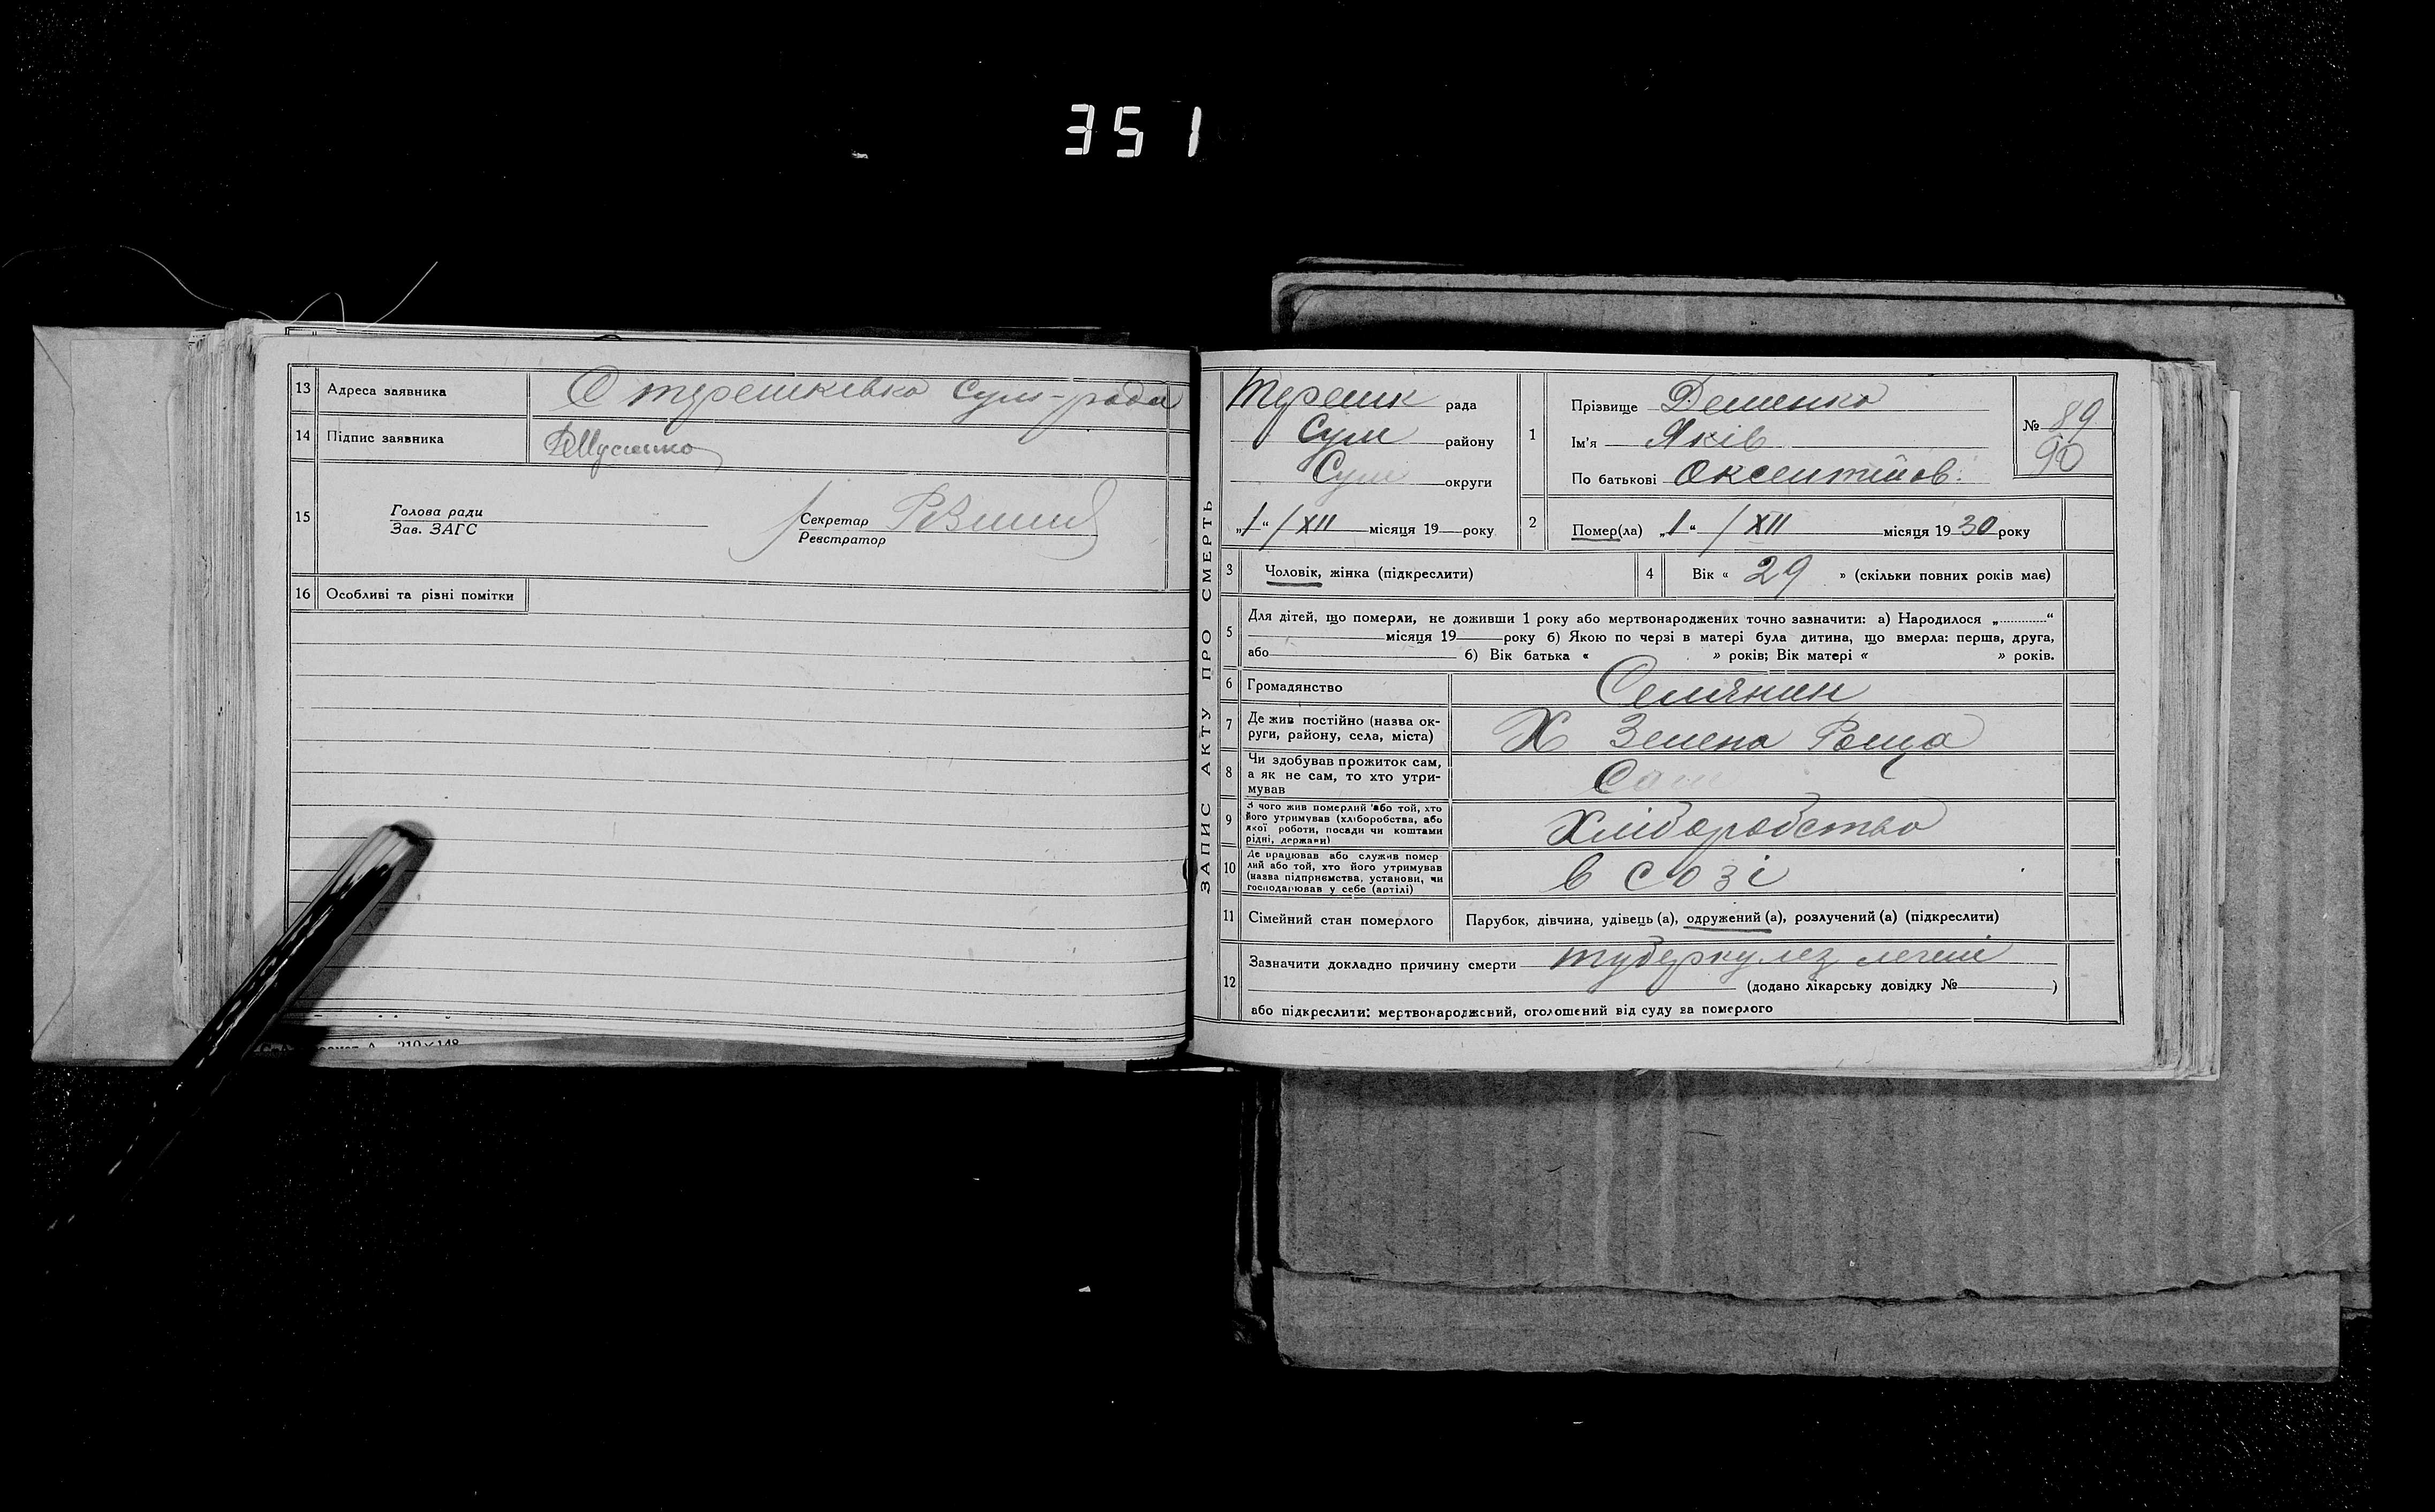 351
13 Адреса заявника С терешківка Сум-рада
14 Підпис заявника Мусиенко
15 Голова ради
Зав. ЗАГС
Секретар
Реєстратор
16 Особливі та різні помітки
210×148
ЗАПИС АКТУ ПРО СМЕРТЬ
Терешк рада
Сум району
Сум округи
„1“ /XII місяця 19 року
1 Прізвище Деменко
Ім'я Яків
По батькові Оксентійов.
№ 89
90
2 Помер(ла) „1“ /XII місяця 1930 року
3 Чоловік, жінка (підкреслити)
4 Вік « 29 » (скільки повних років має)
5 Для дітей, що померли, не доживши 1 року або мертвонароджених точно зазначити: а) Народилося „..........“
місяця 19 року б) Якою по черзі в матері була дитина, що вмерла: перша, друга,
або б) Вік батька « » років; Вік матері « » років.
6 Громадянство Селянин
7 Де жив постійно (назва ок-
руги, району, села, міста) Х Зелена Роща
8 Чи здобував прожиток сам,
а як не сам, то хто утри-
мував Сам
9 З чого жив померлий або той, хто
його утримував (хліборобства, або
якої роботи, посади чи коштами
рідні, держави) Хліборобство
10 Де працював або служив помер
лий або той, хто його утримував
(назва підприємства, установи, чи
господарював у себе (артілі) в созі
11 Сімейний стан померлого Парубок, дівчина, удівець (а), одружений (а), розлучений (а) (підкреслити)
12 Зазначити докладно причину смерти туберкулез легені
(додано лікарську довідку № )
або підкреслити: мертвонароджений, оголошений від суду за померлого